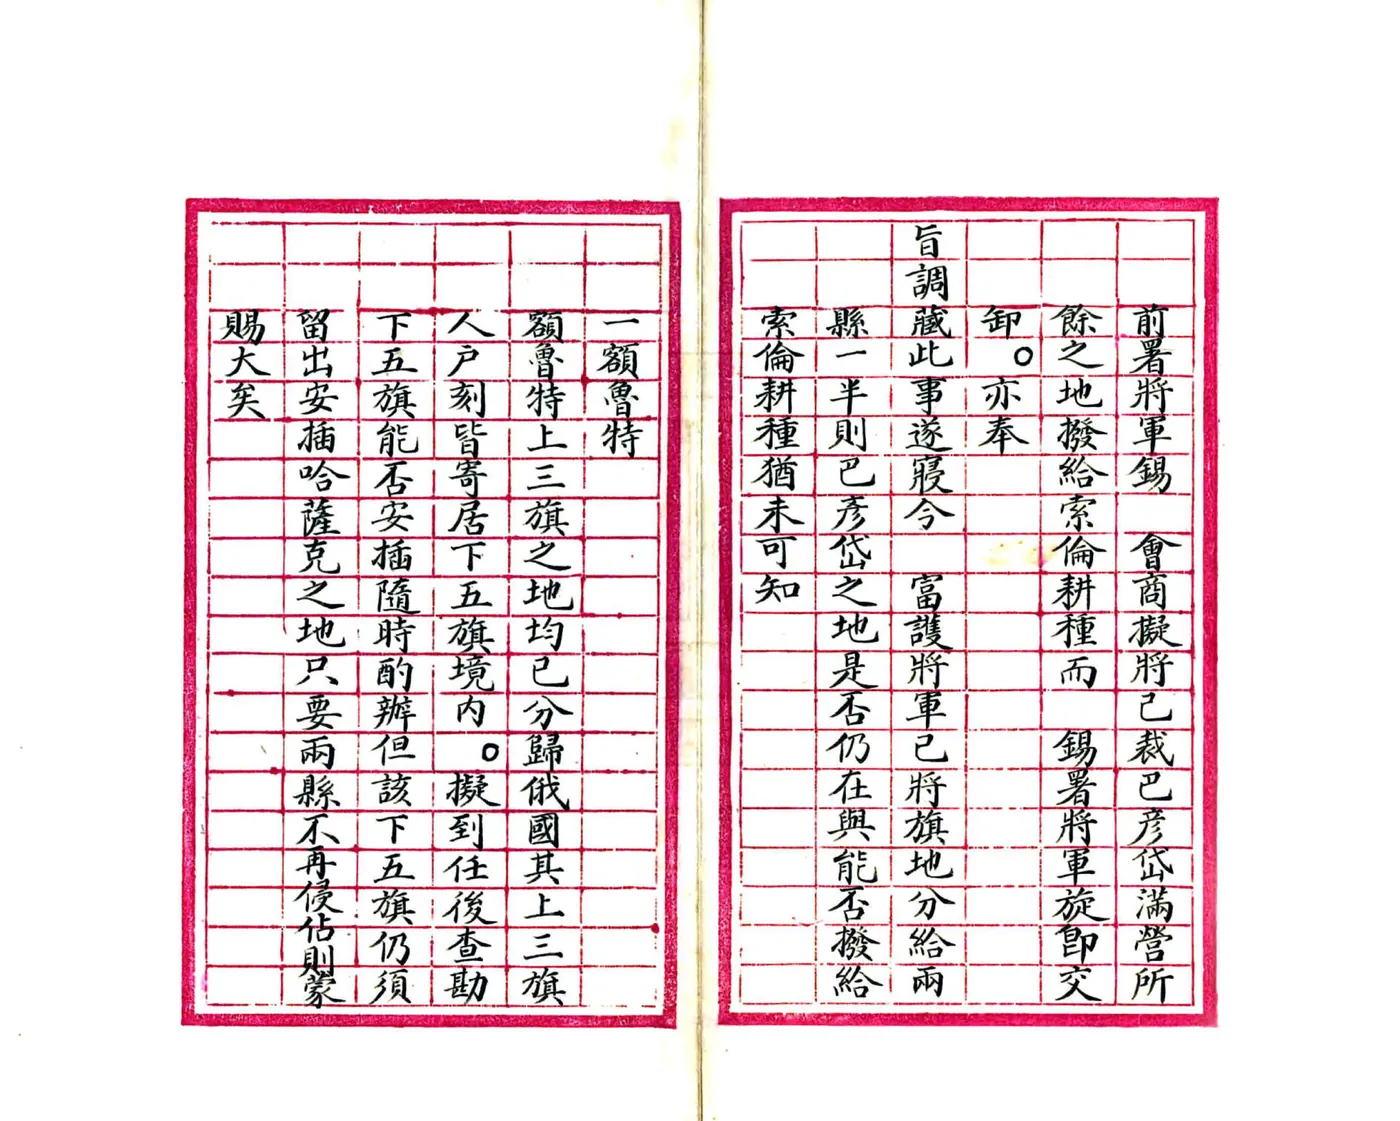 前署將軍錫　會商擬將已裁巴彦岱滿營所
餘之地撥給索倫耕種而　錫署將軍旋卽交
卸。亦奉
旨調藏此事遂寢今　富護將軍已將旗地分給兩
縣一半則巴彦岱之地是否仍在與能否撥給
索倫耕種猶未可知
一額魯特
額魯特上三旗之地均已分歸俄國其上三旗
人户刻皆寄居下五旗境内。擬到任後查勘
下五旗能否安插隨時酌辦但該下五旗仍須
留出安插哈薩克之地只要兩縣不再侵佔則蒙
賜大矣